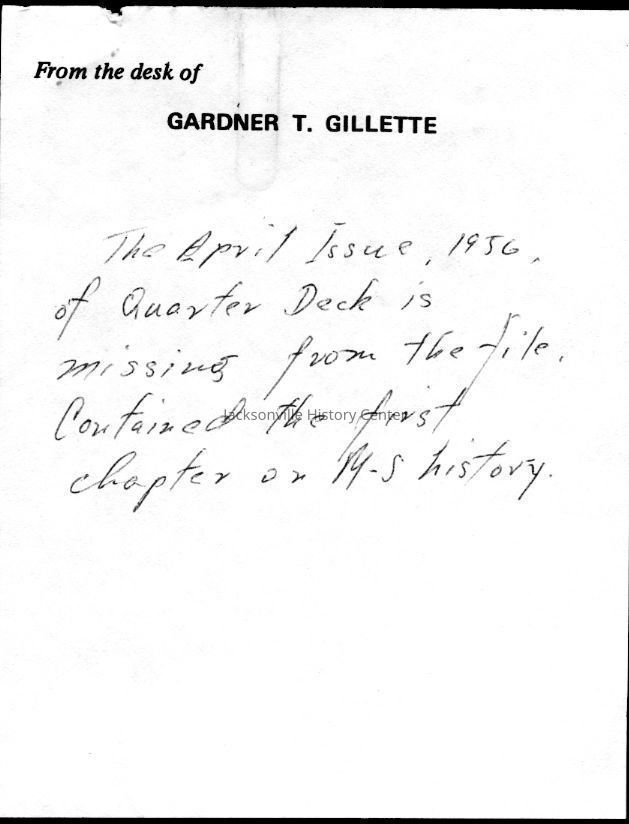 From the desk of
GARDNER T. GILLETTE
The April Issue, 1956,
of Quarter Deck is
missing from the file.
Jacksonville History Center
Contained the first
chapter on M-S history.